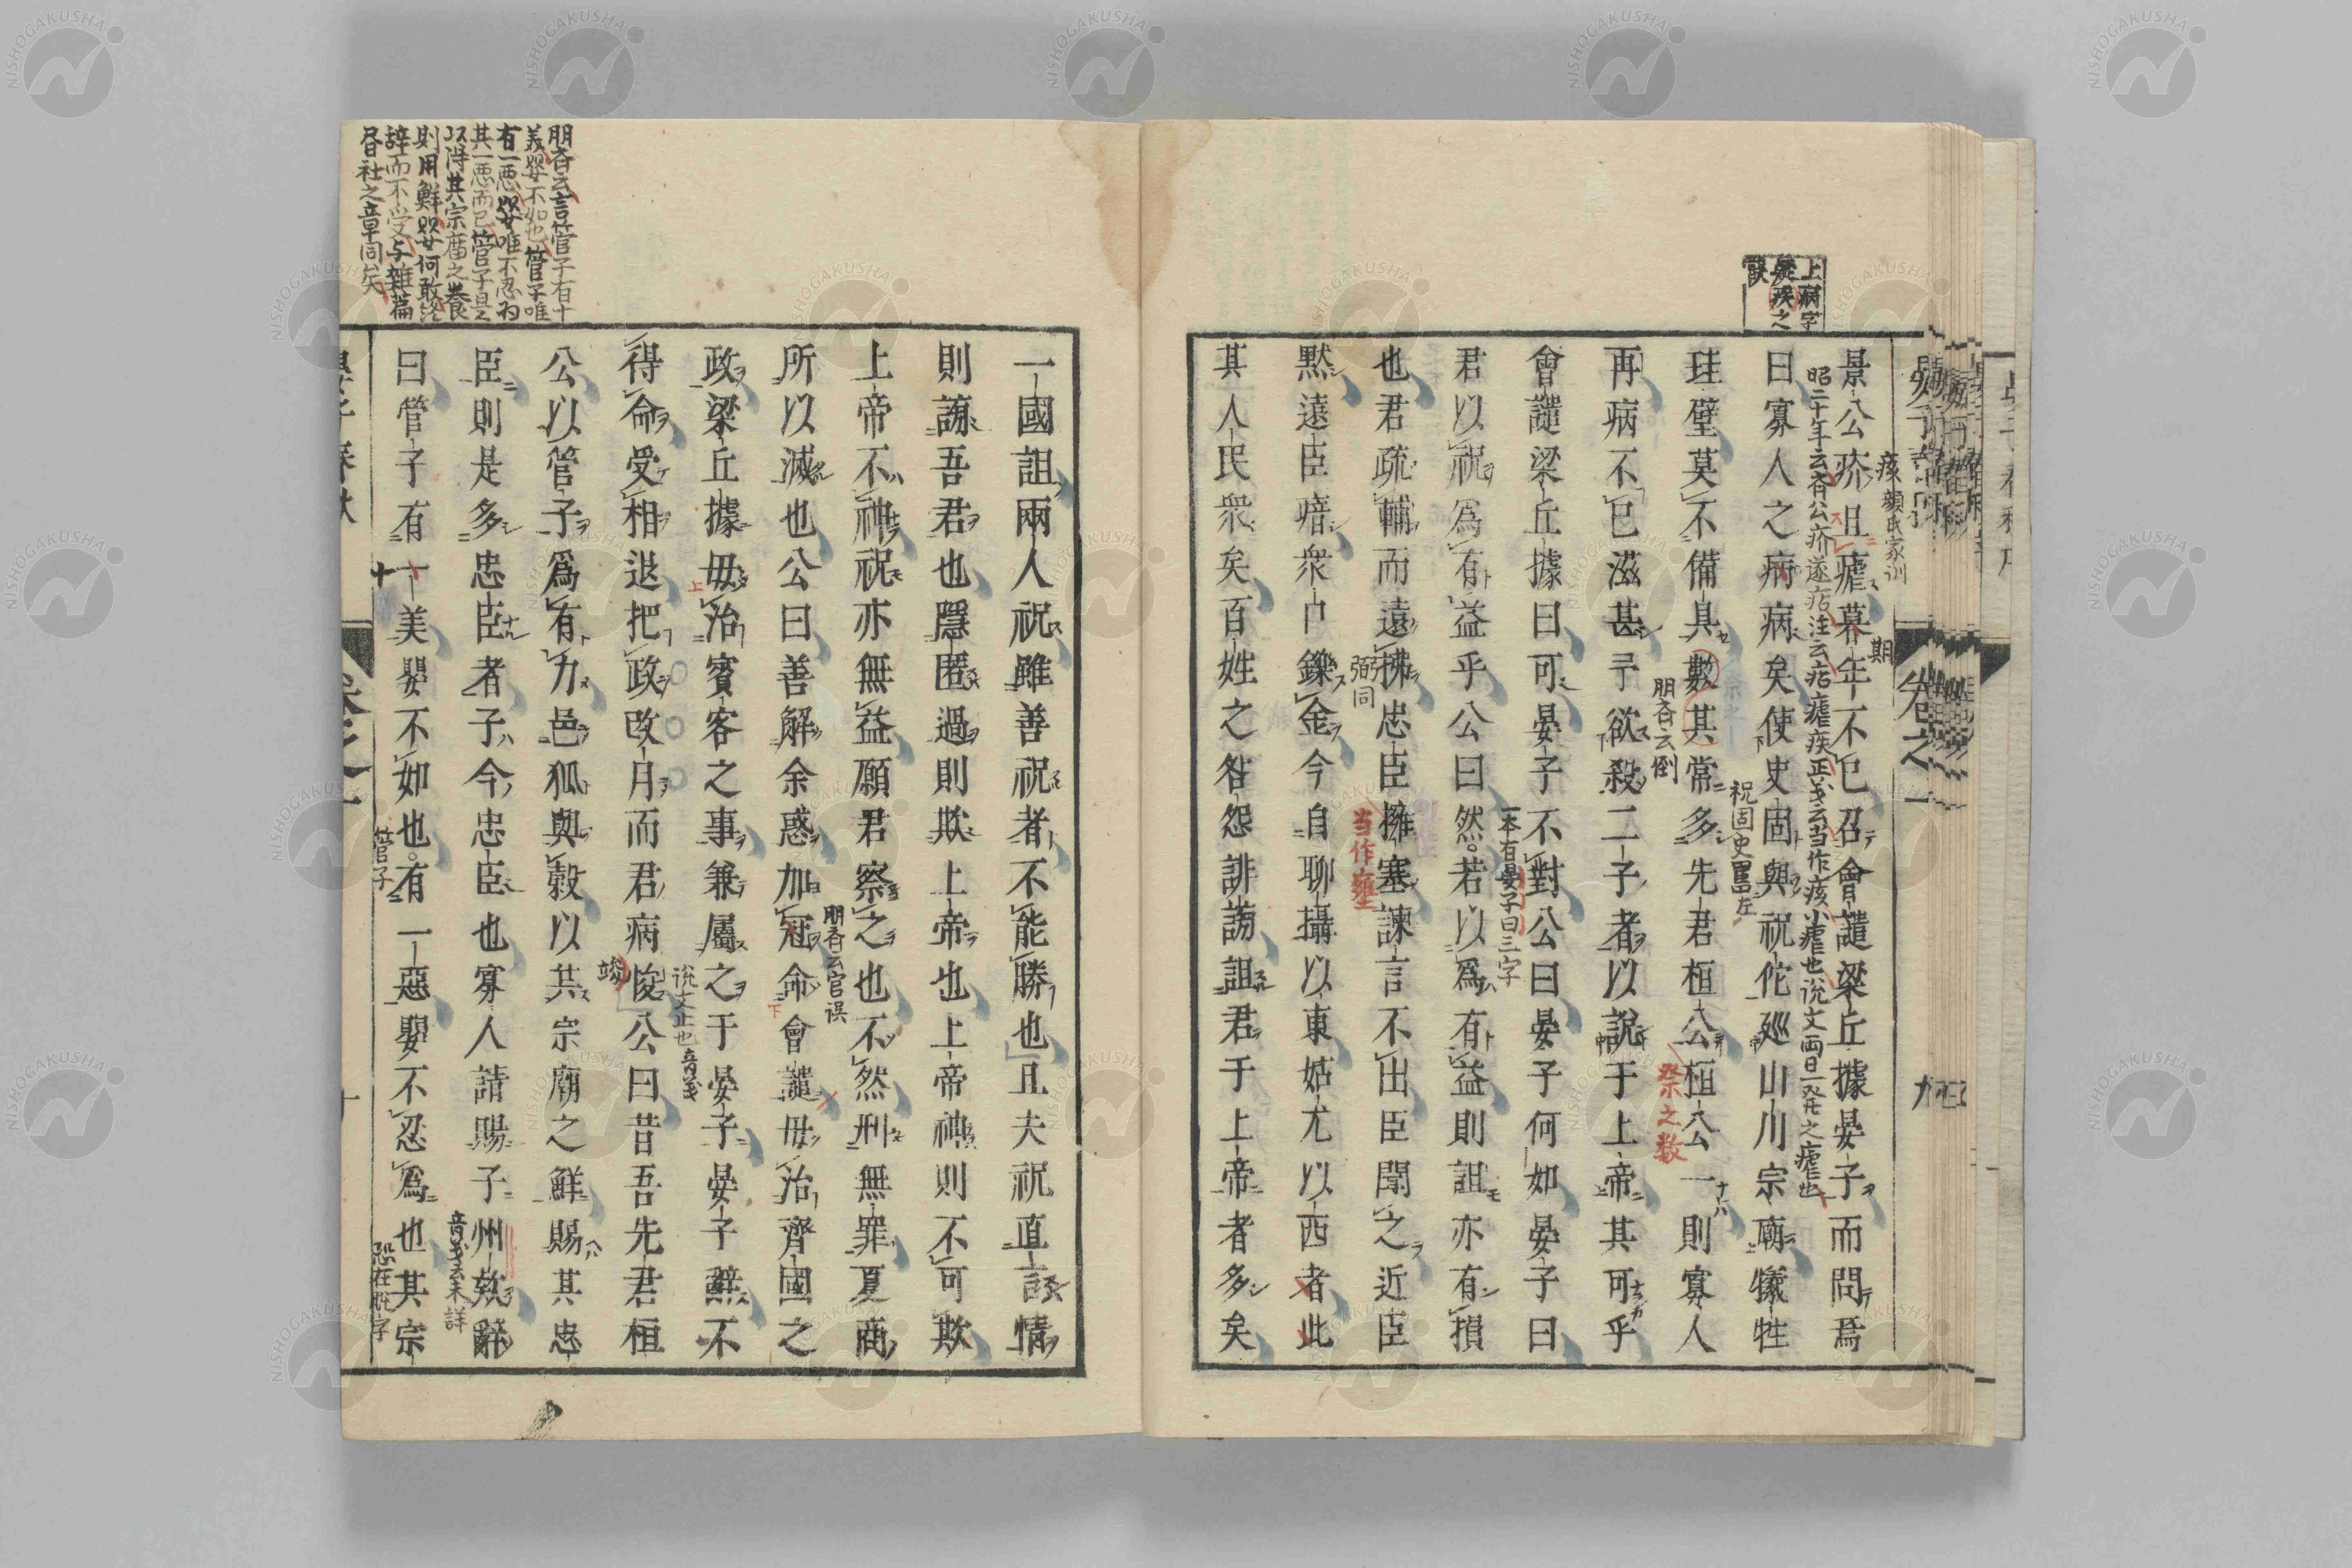 上病字
疑疾之
誤
景公疥且瘧暮年不已召會譴梁丘據晏子而問焉
痎顏氏家训
期
昭二十年云斉公疥遂痁注云痁瘧疾正義云当作痎小瘧也说文両日一発之瘧也
曰寡人之病病矣使史固與祝佗廵山川宗廟犠牲
祝固史嚚左
珪璧莫不備具數其常多先君桓公桓公一則寡人
朋斉云倒
祭之数
再病不已滋甚予欲殺二子者以說于上帝其可乎
會譴梁丘據曰可晏子不對公曰晏子何如晏子曰
一本有晏子曰三字
君以祝爲有益乎公曰然若以爲有益則詛亦有損
也君疏輔而遠拂忠臣擁塞諫言不出臣聞之近臣
弼同
当作壅
黙遠臣瘖衆口鑠金今自聊攝以東姑尤以西者此
其人民衆矣百姓之咎怨誹謗詛君于上帝者多矣
晏子春秋
卷之一
九
一國詛兩人祝雖善祝者不能勝也且夫祝直言情
則謗吾君也隱匿過則欺上帝也上帝神則不可欺
上帝不神祝亦無益願君察之也不然刑無罪夏商
所以滅也公曰善解余惑加冠命會譴毋治齊國之
朋斉云官误
政梁丘據毋治賓客之事兼屬之于晏子晏子辭不
说文止也音義
得命受相退把政改月而君病悛公曰昔吾先君桓
竣
公以管子爲有力邑狐與穀以共宗廟之鮮賜其忠
臣則是多忠臣者子今忠臣也寡人請賜子州欵辭
音義云未詳
曰管子有一美嬰不如也有一惡嬰不忍爲也其宗
十
管子
朋斉云言管子有十
義嬰不如也管子唯
有一悪嬰唯不忍为
其一悪而已管子是之
以得其宗庿之養
則用鮮嬰何敢
辞而不受与雑篇
昼社之章同矣